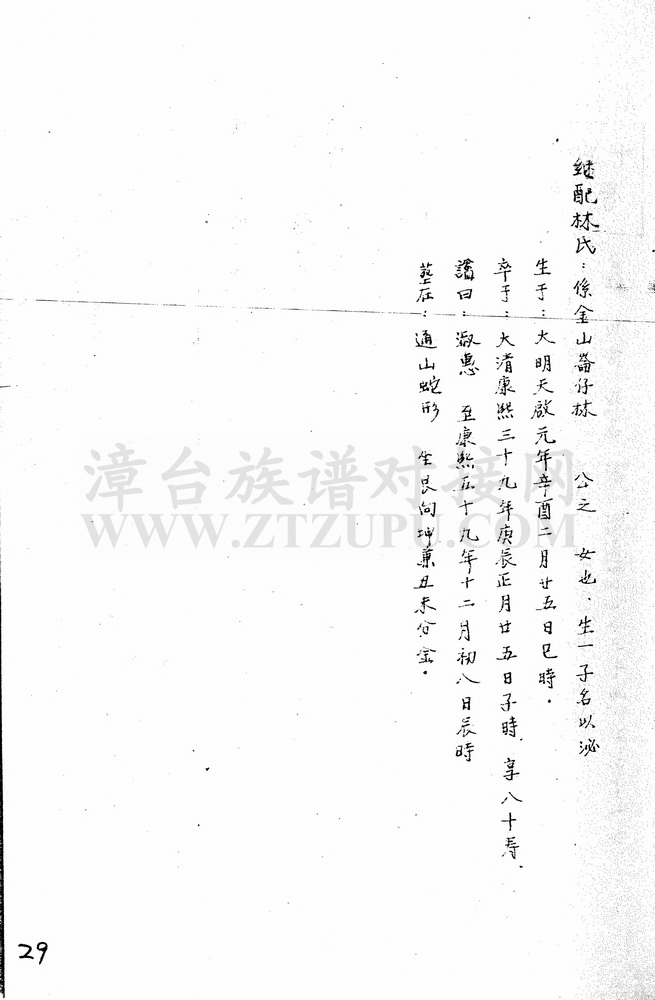 继配林氏：係金山崙仔林　公之　女也．生一子名以泌
生于：大明天啟元年辛酉二月廿五日巳時．
卒于：大清康熙三十九年庚辰正月廿五日子時．享八十寿．
諡曰：淑惠　至康熙五十九年十二月初八日辰時
塟在：通山蛇形　坐艮向坤兼丑未分金．
漳台族谱对接网
WWW.ZTZUPU.COM
29